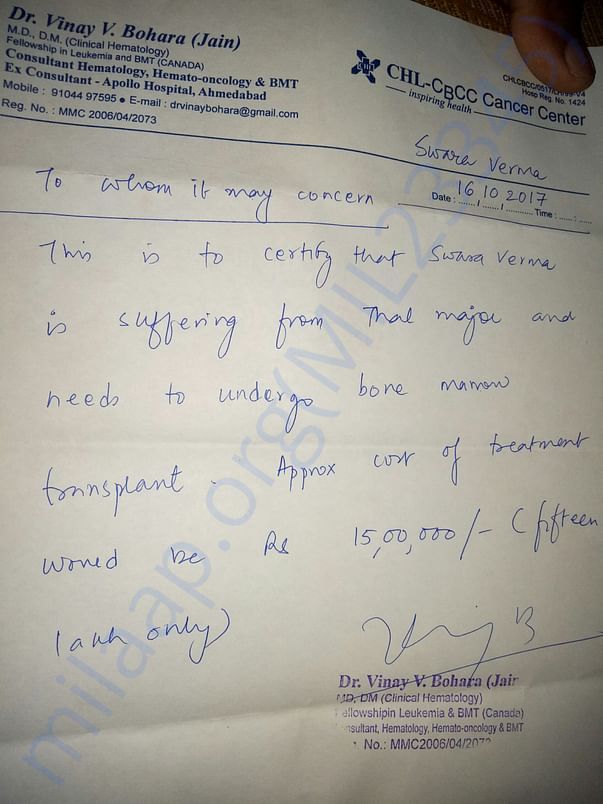 Dr. Vinay V. Bohara (Jain)
M.D., D.M. (Clinical Hematology)
Fellowship in Leukemia and BMT (CANADA)
Consultant Hematology, Hemato-oncology & BMT
Ex Consultant - Apollo Hospital, Ahmedabad
Mobile : 91044 97595 • E-mail : drvinaybohara@gmail.com
Reg. No. : MMC 2006/04/2073
Hosp Reg. No. 1424
CHL-CBCC Cancer Center
inspiring health
Swara Verma
Date : 16 10 2017 Time :
To whom it may concern
This is to certify that Swara Verma
is suffering from Thal major and
needs to undergo bone marrow
transplant. Approx cost of treatment
would be Rs 15,00,000/- (fifteen
lakh only)
Dr. Vinay V. Bohara (Jair
MD, DM (Clinical Hematology)
ellowshipin Leukemia & BMT (Canada)
nsultant, Hematology, Hemato-oncology & BMT
No.: MMC2006/04/2073